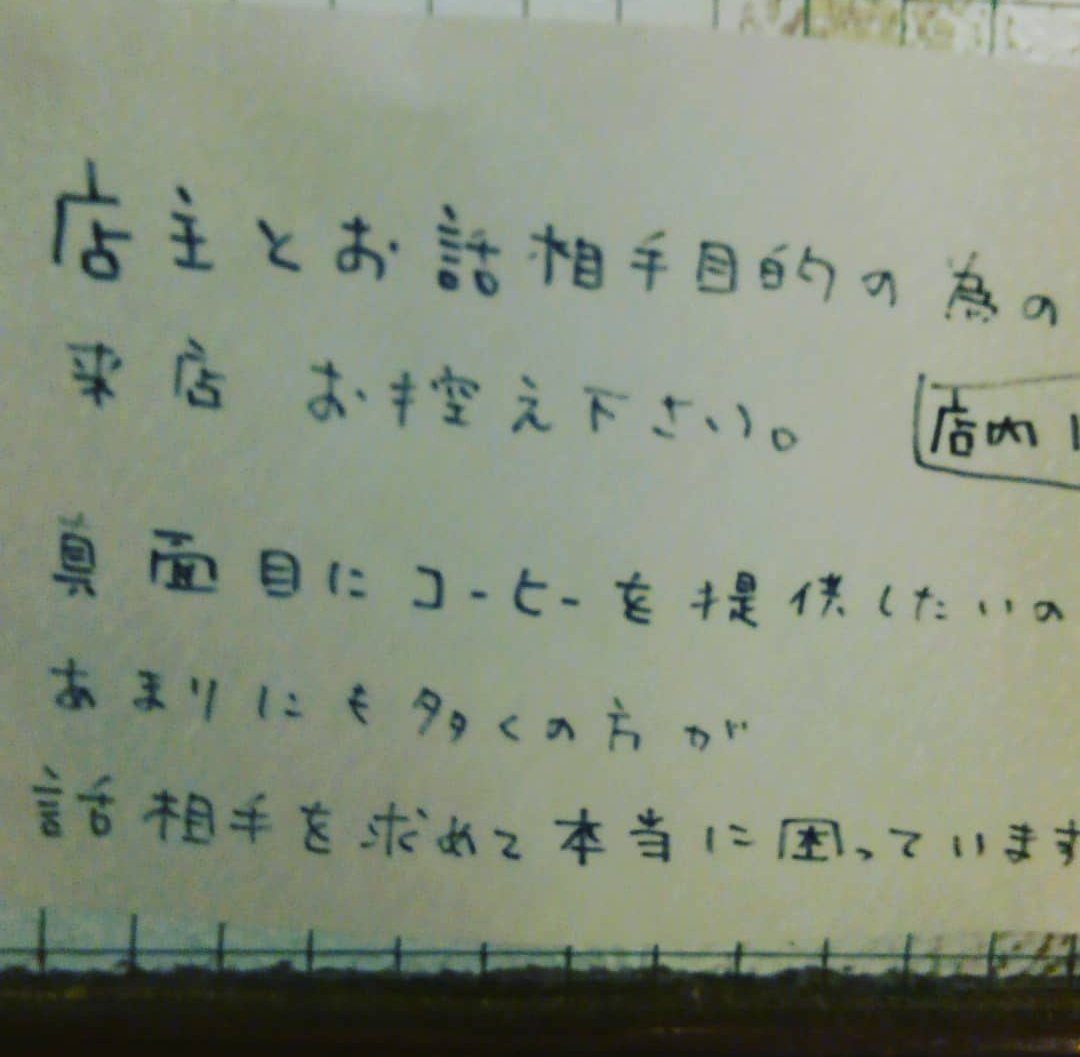 店主とお話相手目的の為の
来店 お控え下さい。
店内
真面目にコーヒーを提供したいの
あまりにも多くの方が
話相手を求めて本当に困っています